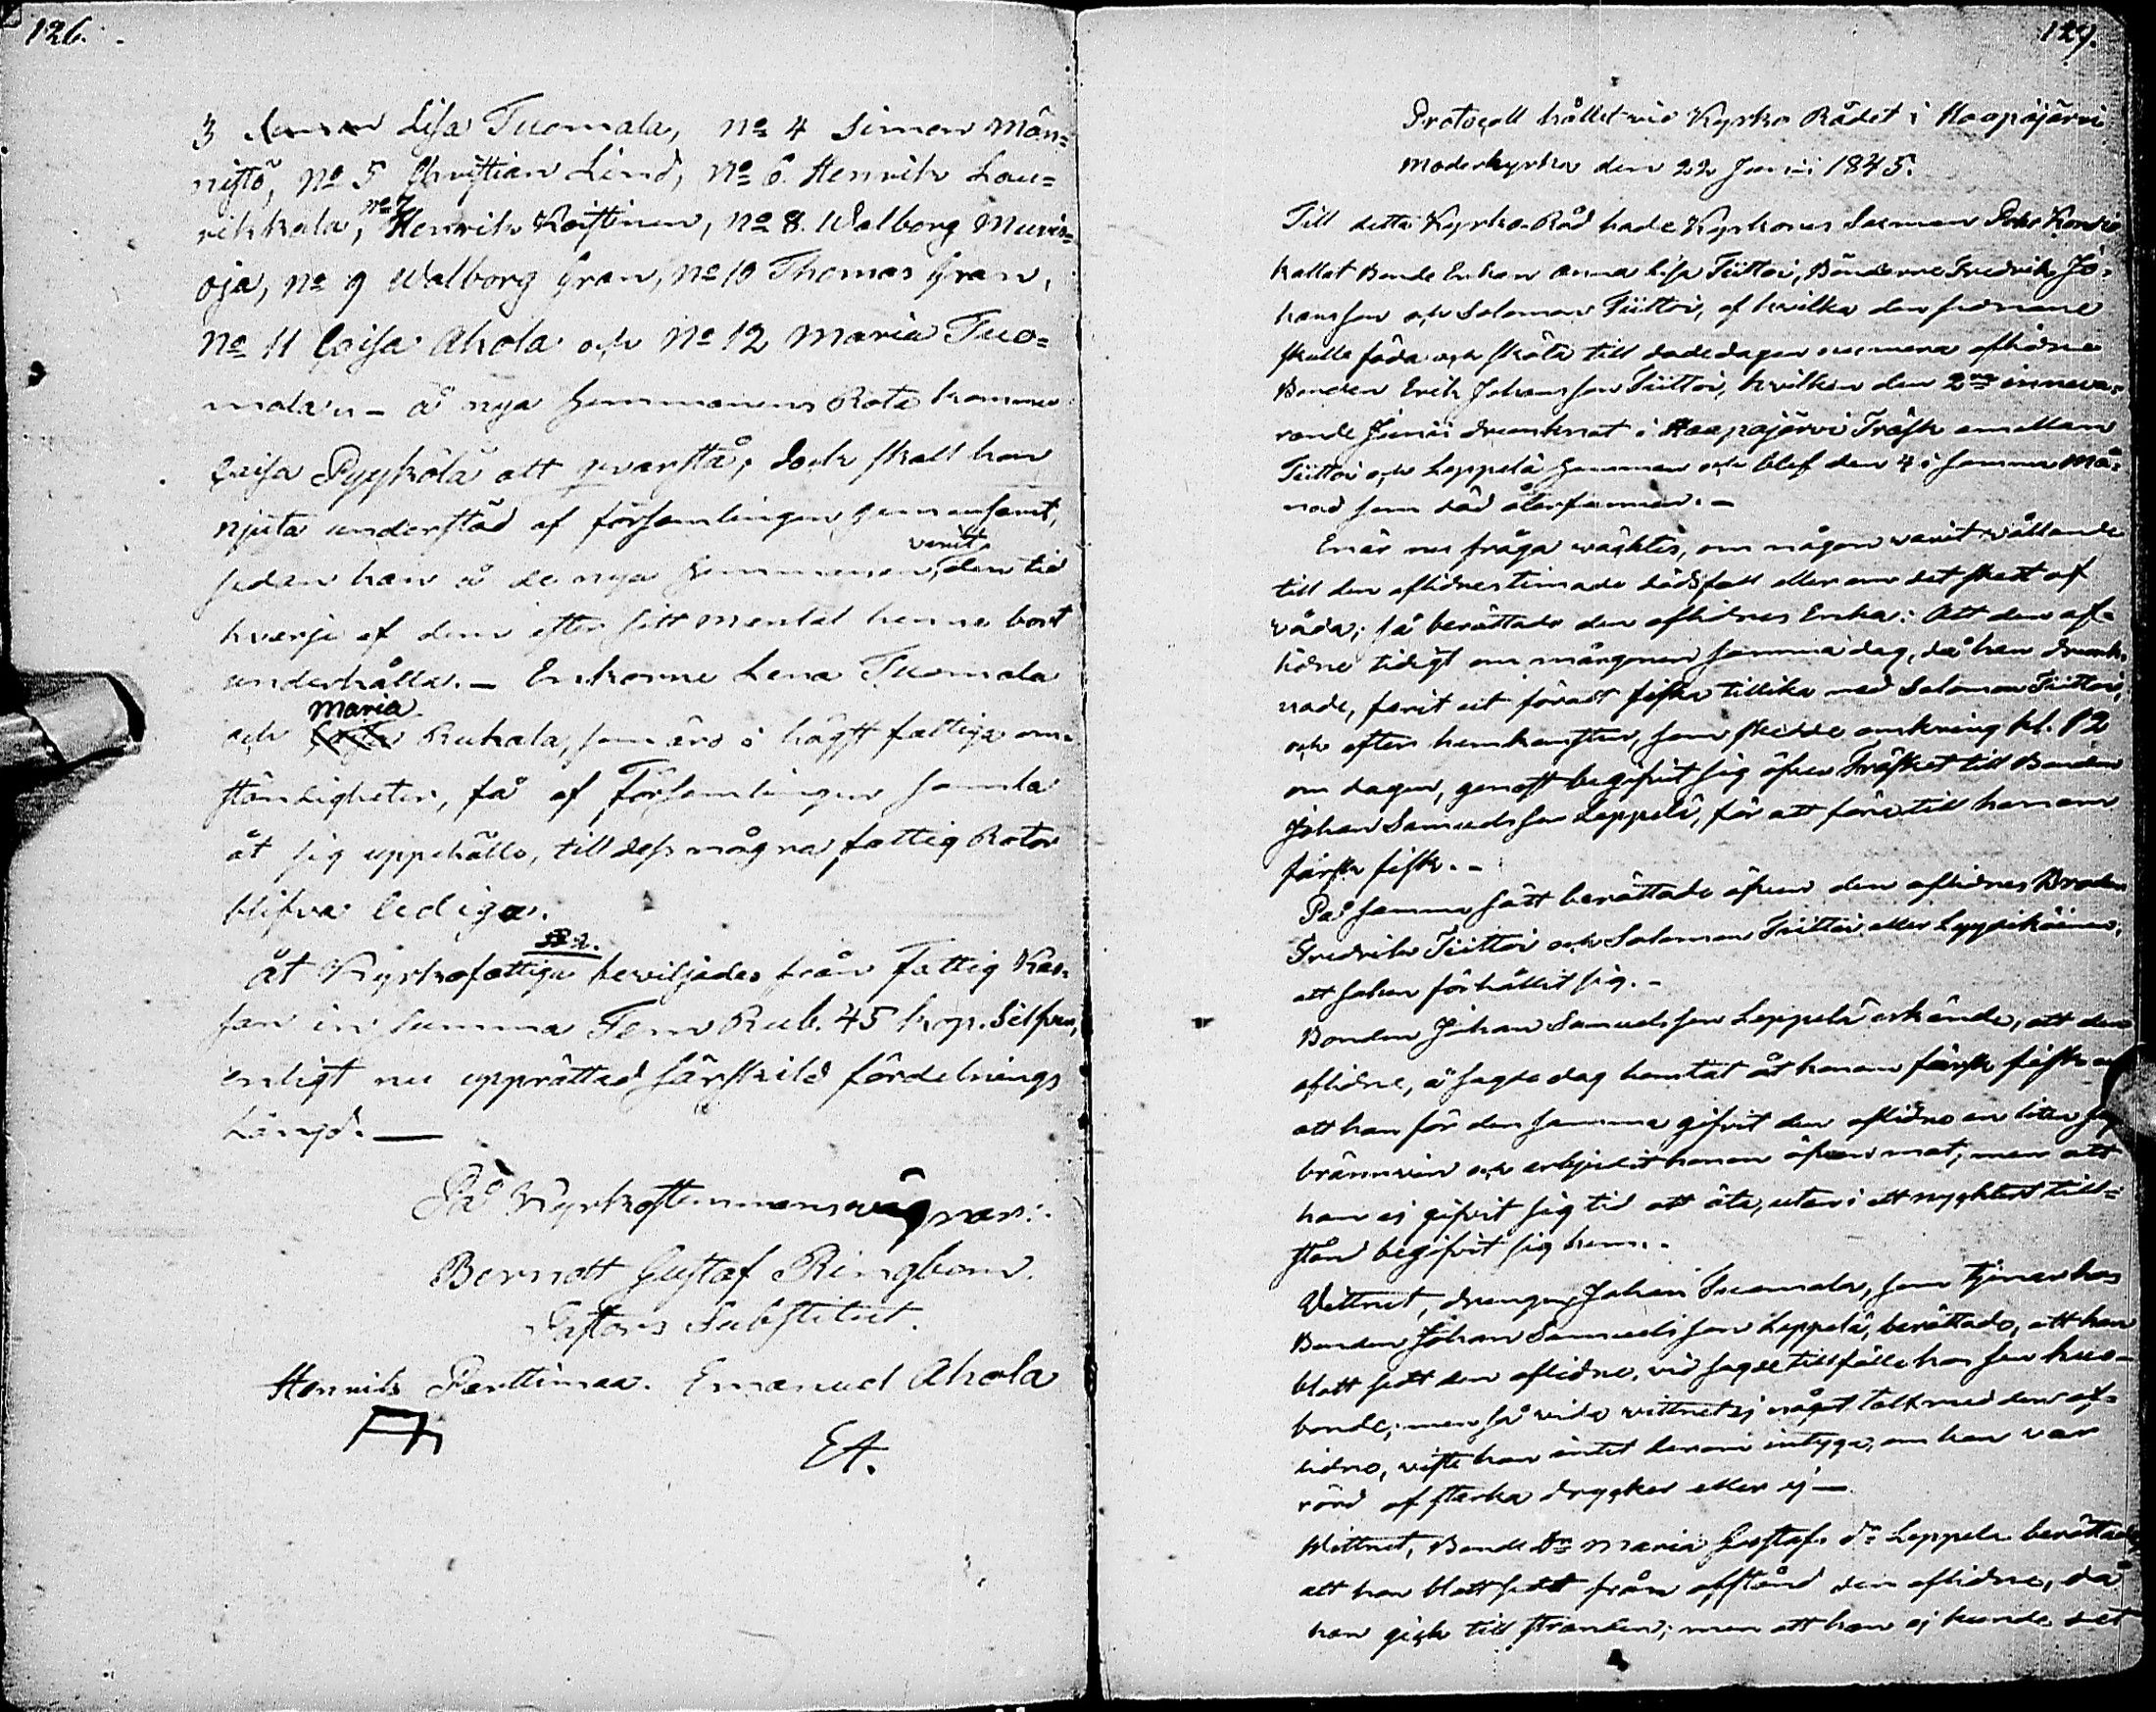 126.
3 Lisa Tuomala, No 4 Simon Män=
nistö, No 5 Christian Lind, No 6. Henrik Lau=
rikkala, No 7 Henrik Koistinen, No 8. Walborg Muris=
oja, No 9 Walborg Gran, No 10 Thomas Gran,
No 11 Caisa Ahola och No 12 Maria Tuo=
mala u – å nya Hemmanens Rota kommer
Caisa Pyykölä att qvarstå, dock skall hon
njuta understöd af församlingen gemensamt,
sedan hon å de nya Hemmanen varit den tid
hvarje af dem efter sitt mental henne bort
underhålla. – Enkorne Lena Tuomala
och Maria Ruhala, som äro i högst fattiga om=
ständigheter, få af Församlingen samla
åt sig uppehälle, till dess några fattig Rotor
blifva lediga.
§ 2.
Åt Kyrkofattiga beviljades från Fattig Kas=
san in summa Fem Rub. 45 kop. Silfver,
enligt nu upprättad särskild fördelnings
Längd. —
På Kyrkostemmans vägnar:
Berndt Gustaf Ringbom.
Pastors Substitut.
Henrik Perttimaa. Emanuel Ahola
EA.
127.
Protocoll hållet vid Kyrko Rådet i Haapajärvi
Moderkyrka den 22 Junii 1845.
Till detta Kyrko-Råd hade Kyrkones Sexman
kallat Bonde Enkan Anna Lisa Tiittoi, Bönderne Fredrik Jo=
hansson och Salomon Tiittoi, af hvilka den förnämnde
skulle föda och sköta till dödedagen nu mera aflidne
Bonden Erik Johansson Tiittoi, hvilken den 2ne inneva=
rande Junii drunknat i Haapajärvi Träsk emellan
Tiittoi och Leppelä Hemman och blef den 4 i samma Må=
nad som död återfunnen. –
Enär nu fråga väcktes, om någon varit vållande
till den aflidnes timade dödsfall eller om det skett af
våda; så berättade den aflidnes Enka: Att den af=
lidne tidigt om morgonen samma dag, då han drunk=
nade, farit ut för att fiska tillika med Salomon Tiittoi,
och efter hemkomsten, som skedde omkring kl. 12
om dagen, genast begifvit sig öfver Träsket till Bonden
Johan Samuelsson Leppelä, för att föra till honom
färsk fisk. –
På samma sätt berättade äfven den aflidnes Broder
Fredrik Tiittoi och Salomon Tiittoi eller
att saken förhållit sig. –
Bonden Johan Samuelsson Leppelä erkände, att den
aflidne, å sagde dag hemtat åt honom färsk fisk och
att han för den samma gifvit den aflidne en liten sup
brännvin och erbjudit honom äfven mat; men att
han ej gifvit sig tid att äta, utan i ett nyktert till=
stånd begifvit sig hem. –
Vittnet, drengen Johan Tuomala, som tjenar hos
Bonden Johan Samuelsson Leppelä, berättade, att han
blott sett den aflidne, vid sagde tillfälle hos sin hus=
bonde; men så vida vittnet ej något talt med den af=
lidne, viste han intet härom intyga, om han var
rörd af starka drycker eller ej —
Wittnet, Bonde Dr Maria Gustafs dr Leppelä berättade,
att hon blott sedt från afstånd den aflidne, då
han gick till stranden; men att hon ej kunde det